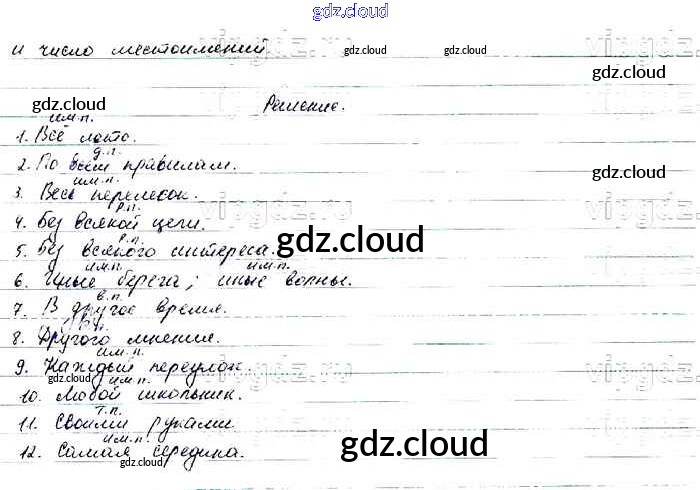 gdz.cloud
и число местоимений
gdz.cloud gdz.cloud
vipgdz.ru
gdz.cloud
gdz.cloud
Решение.
им.п.
1. Всё лето.
д.п.
2. По всем правилам.
gdz.cloud
им.п.
3. Весь перелесок.
vipgdz.ru
р.п.
4. Без всякой цели.
gdz.cloud
р.п.
5. Без всякого интереса.
gdz.cloud
им.п. им.п.
6. Иные берега; иные волны.
в.п.
7. В другое время.
р.п.
8. Другого мнения.
им.п.
9. Каждый переулок.
gdz.cloud
им.п.
10. Любой школьник.
gdz.cloud
т.п.
11. Своими руками
им.п.
12. Самая середина.
gdz.cloud
gdz.cloud